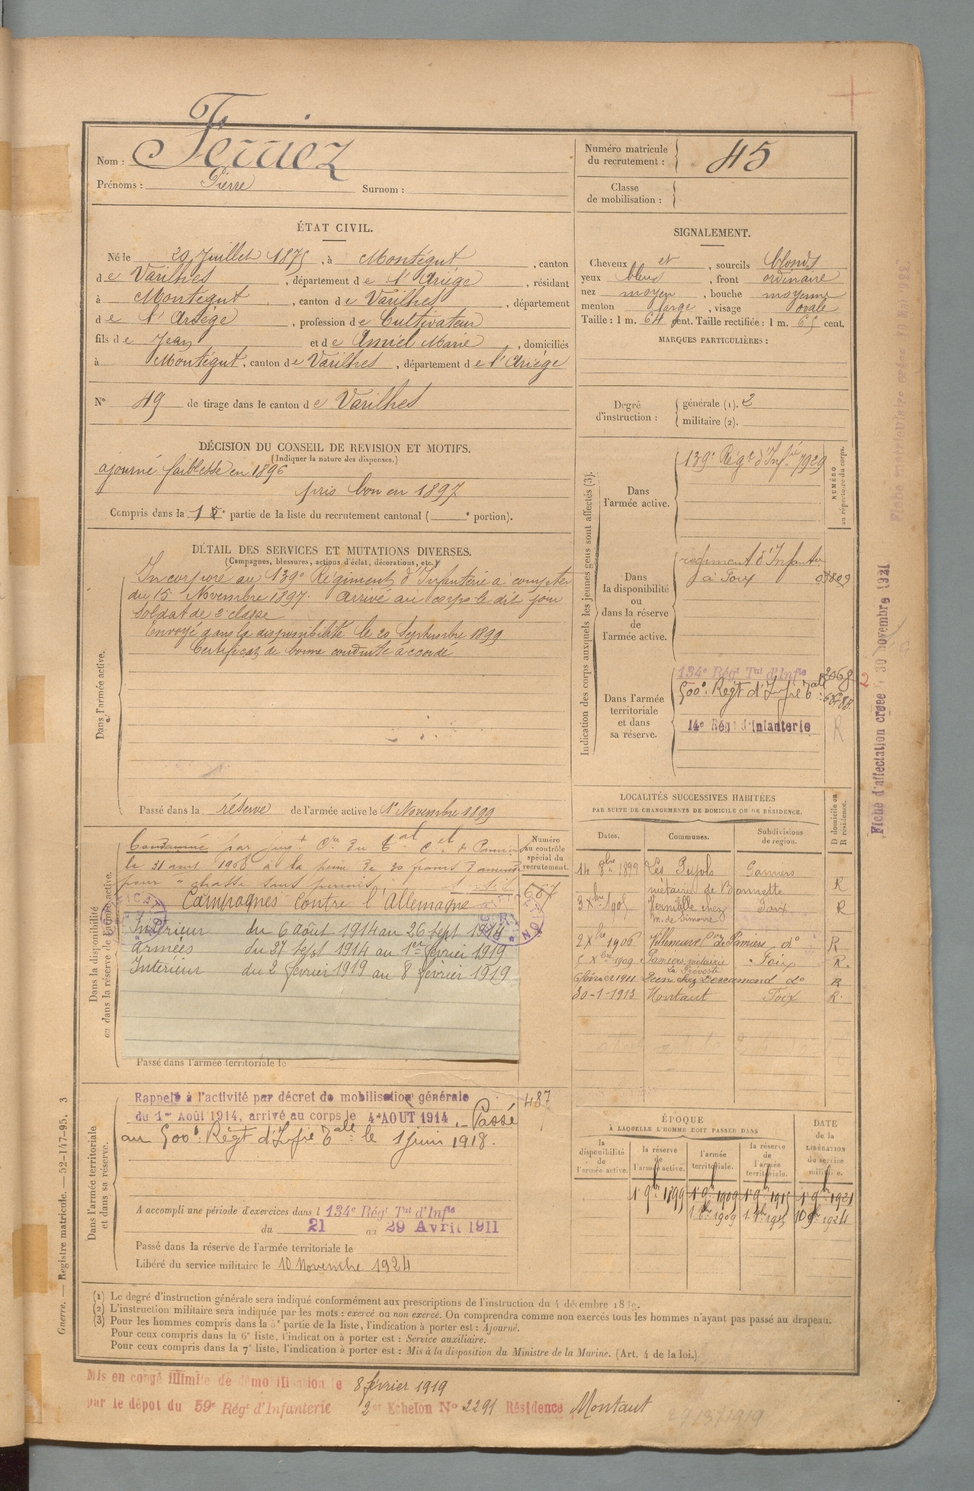 Nom : Ferriez
Prénoms : Pierre Surnom :
Numéro matricule du recrutement : 45
Classe de mobilisation :
ÉTAT CIVIL.
Né le 29 Juillet 1875, à Montégut, canton
de Varilhes, département de l'Ariège, résidant
à Montégut, canton de Varilhes, département
de l'Ariège, profession de Cultivateur
fils de Jean et de Amiel Marie, domiciliés
à Montégut, canton de Varilhes, département de l'Ariège
N° 49 de tirage dans le canton de Varilhes
SIGNALEMENT.
Cheveux et, sourcils blonds
yeux bleus, front ordinaire
nez moyen, bouche moyenne
menton large, visage ovale
Taille : 1 m. 64 cent. Taille rectifiée : 1 m. 65 cent.
MARQUES PARTICULIÈRES :
Degré d'instruction : générale (1). 2
militaire (2).
DÉCISION DU CONSEIL DE REVISION ET MOTIFS.
(Indiquer la nature des dispenses.)
ajourné faiblesse en 1896
pris bon en 1897
Compris dans la 1e partie de la liste du recrutement cantonal ( e portion).
DÉTAIL DES SERVICES ET MUTATIONS DIVERSES.
(Campagnes, blessures, actions d'éclat, décorations, etc.)
Dans l'armée active.
Incorporé au 139e Régiment d'Infanterie à compter
du 15 Novembre 1897. Arrivé au corps le dit jour
soldat de 2e classe
Envoyé dans la disponibilité le 20 Septembre 1899
Certificat de bonne conduite accordé
Passé dans la réserve de l'armée active le 1er Novembre 1899
Indication des corps auxquels les jeunes gens sont affectés (3).
NUMÉRO au répertoire du corps.
Dans l'armée active.
139e Régt d'Infie 7929
Dans la disponibilité ou dans la réserve de l'armée active.
régiment d'Infanterie
à Foix
Dans l'armée territoriale et dans sa réserve.
134e Régt Tal d'Infie
500e Régt d'Infie Tale
14e Régt d'Infanterie
R
Fiche d'affectation créée le 30 novembre 1921
Dans la disponibilité ou dans la réserve de l'armée active.
Condamné par
pour chasse sans permis
Numéro au contrôle spécial du recrutement.
Campagnes contre l'Allemagne
Intérieur du 6 août 1914 au 26 sept 1914
Armées du 27 sept 1914 au 1er février 1919
Intérieur du 2 février 1919 au 8 février 1919
Passé dans l'armée territoriale le
LOCALITÉS SUCCESSIVES HABITÉES
PAR SUITE DE CHANGEMENTS DE DOMICILE OU DE RÉSIDENCE.
Dates. Communes. Subdivisions de région. D domicile ou R résidence.
14 8bre 1899 Les Pujols Pamiers R
métairie de Bonnette
3 Xbre 1905 Foix R
2 Xbre 1906 Villeneuve du Paréage do R
1909 Pamiers métairie Foix R
1911 do R
30-1-1913 Montaut Foix R
Dans l'armée territoriale et dans sa réserve.
Rappelé à l'activité par décret de mobilisation générale
du 1er Août 1914, arrivé au corps le 4 AOUT 1914. Passé
au 500e Régt d'Infie Tale le 1 juin 1918.
487
A accompli une période d'exercices dans l 134e Régt Tal d'Infie
du 21 au 29 Avril 1911
Passé dans la réserve de l'armée territoriale le
Libéré du service militaire le 10 Novembre 1924
ÉPOQUE
À LAQUELLE L'HOMME DOIT PASSER DANS
DATE de la LIBÉRATION du service militaire.
la disponibilité de l'armée active. la réserve de l'armée active. l'armée territoriale. la réserve de l'armée territoriale.
1er 9bre 1899 1er 9bre 1909 1er 9bre 1915 1er 9bre 1921
1909 1915 10 9bre 1924
(1) Le degré d'instruction générale sera indiqué conformément aux prescriptions de l'instruction du 4 décembre 1889.
(2) L'instruction militaire sera indiquée par les mots : exercé ou non exercé. On comprendra comme non exercés tous les hommes n'ayant pas passé au drapeau.
(3) Pour les hommes compris dans la 5e partie de la liste, l'indication à porter est : Ajourné.
Pour ceux compris dans la 6e liste, l'indication à porter est : Service auxiliaire.
Pour ceux compris dans la 7e liste, l'indication à porter est : Mis à la disposition du Ministre de la Marine. (Art. 4 de la loi.)
Guerre. — Registre matricule. — 52-147-95. 3
Mis en congé illimité de démobilisation le 8 février 1919
par le dépôt du 59e Régt d'Infanterie 2e Echelon N° 2291 Résidence Montaut
27/3/1919